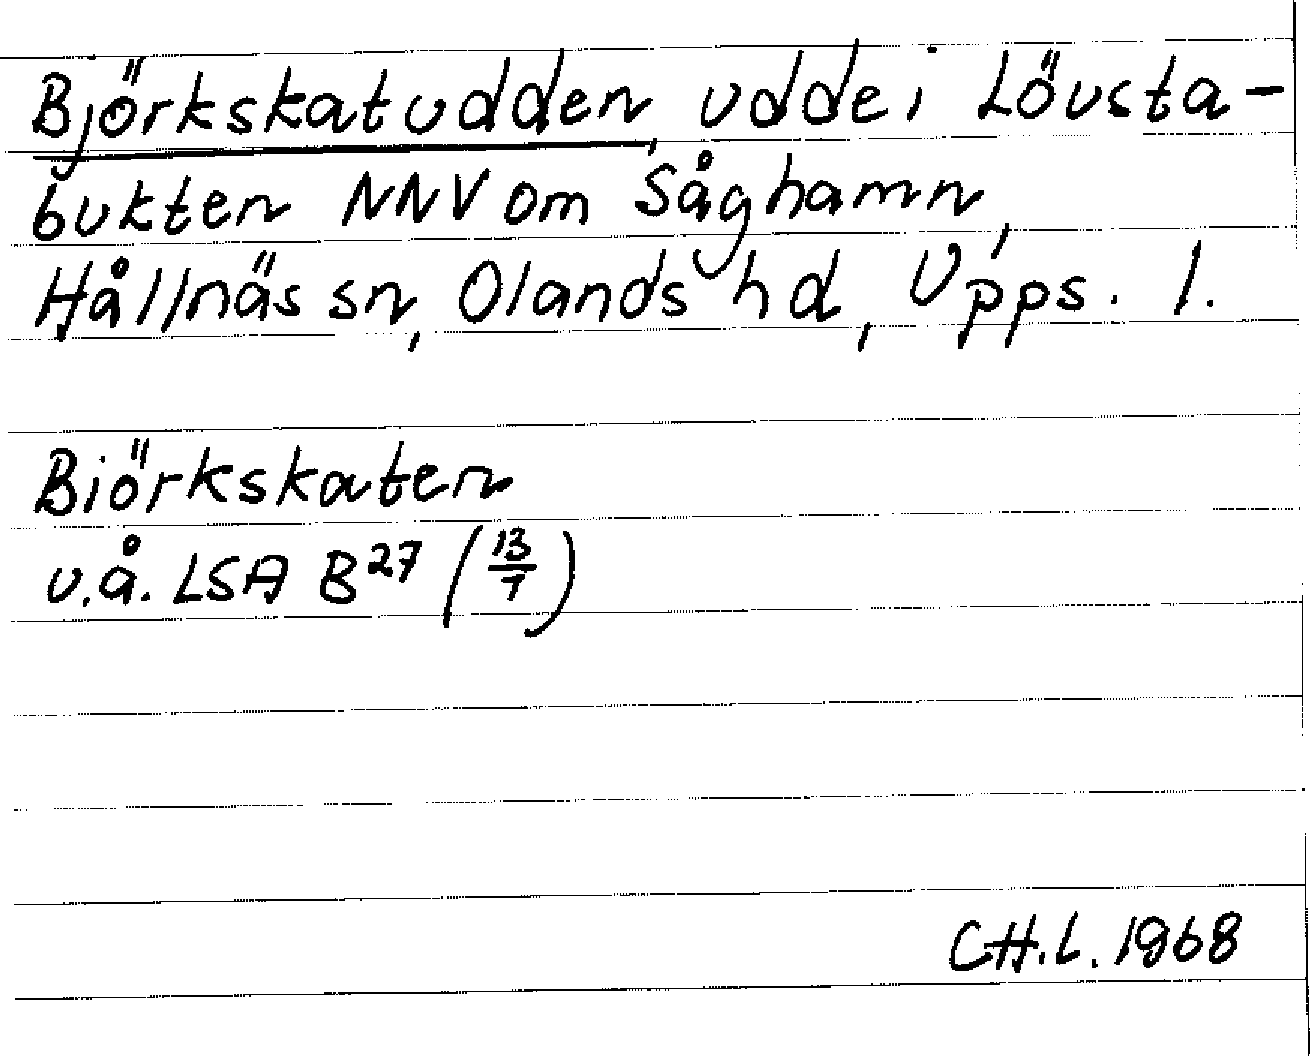 Björkskatudden, udde i Lövsta-
bukten NNV om Såghamn,
Hållnäs sn, Olands hd, Upps. l.
Biörkskaten
u.å. LSA B²⁷ (13/7)
CH.L. 1968